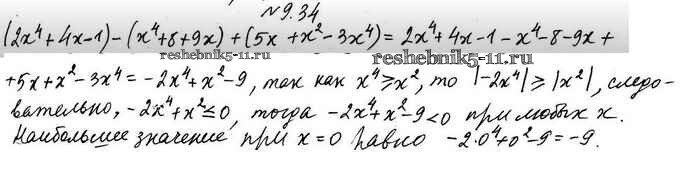 №9.34
(2x⁴+4x-1)-(x⁴+8+9x)+(5x+x²-3x⁴)=2x⁴+4x-1-x⁴-8-9x+
reshebnik5-11.ru reshebnik5-11.ru
+5x+x²-3x⁴=-2x⁴+x²-9, так как x⁴⩾x², то |-2x⁴|⩾|x²|, следо-
вательно, -2x⁴+x²⩽0, тогда -2x⁴+x²-9<0 при любых x.
Наибольшее значение при x=0 равно -2·0⁴+0²-9=-9.